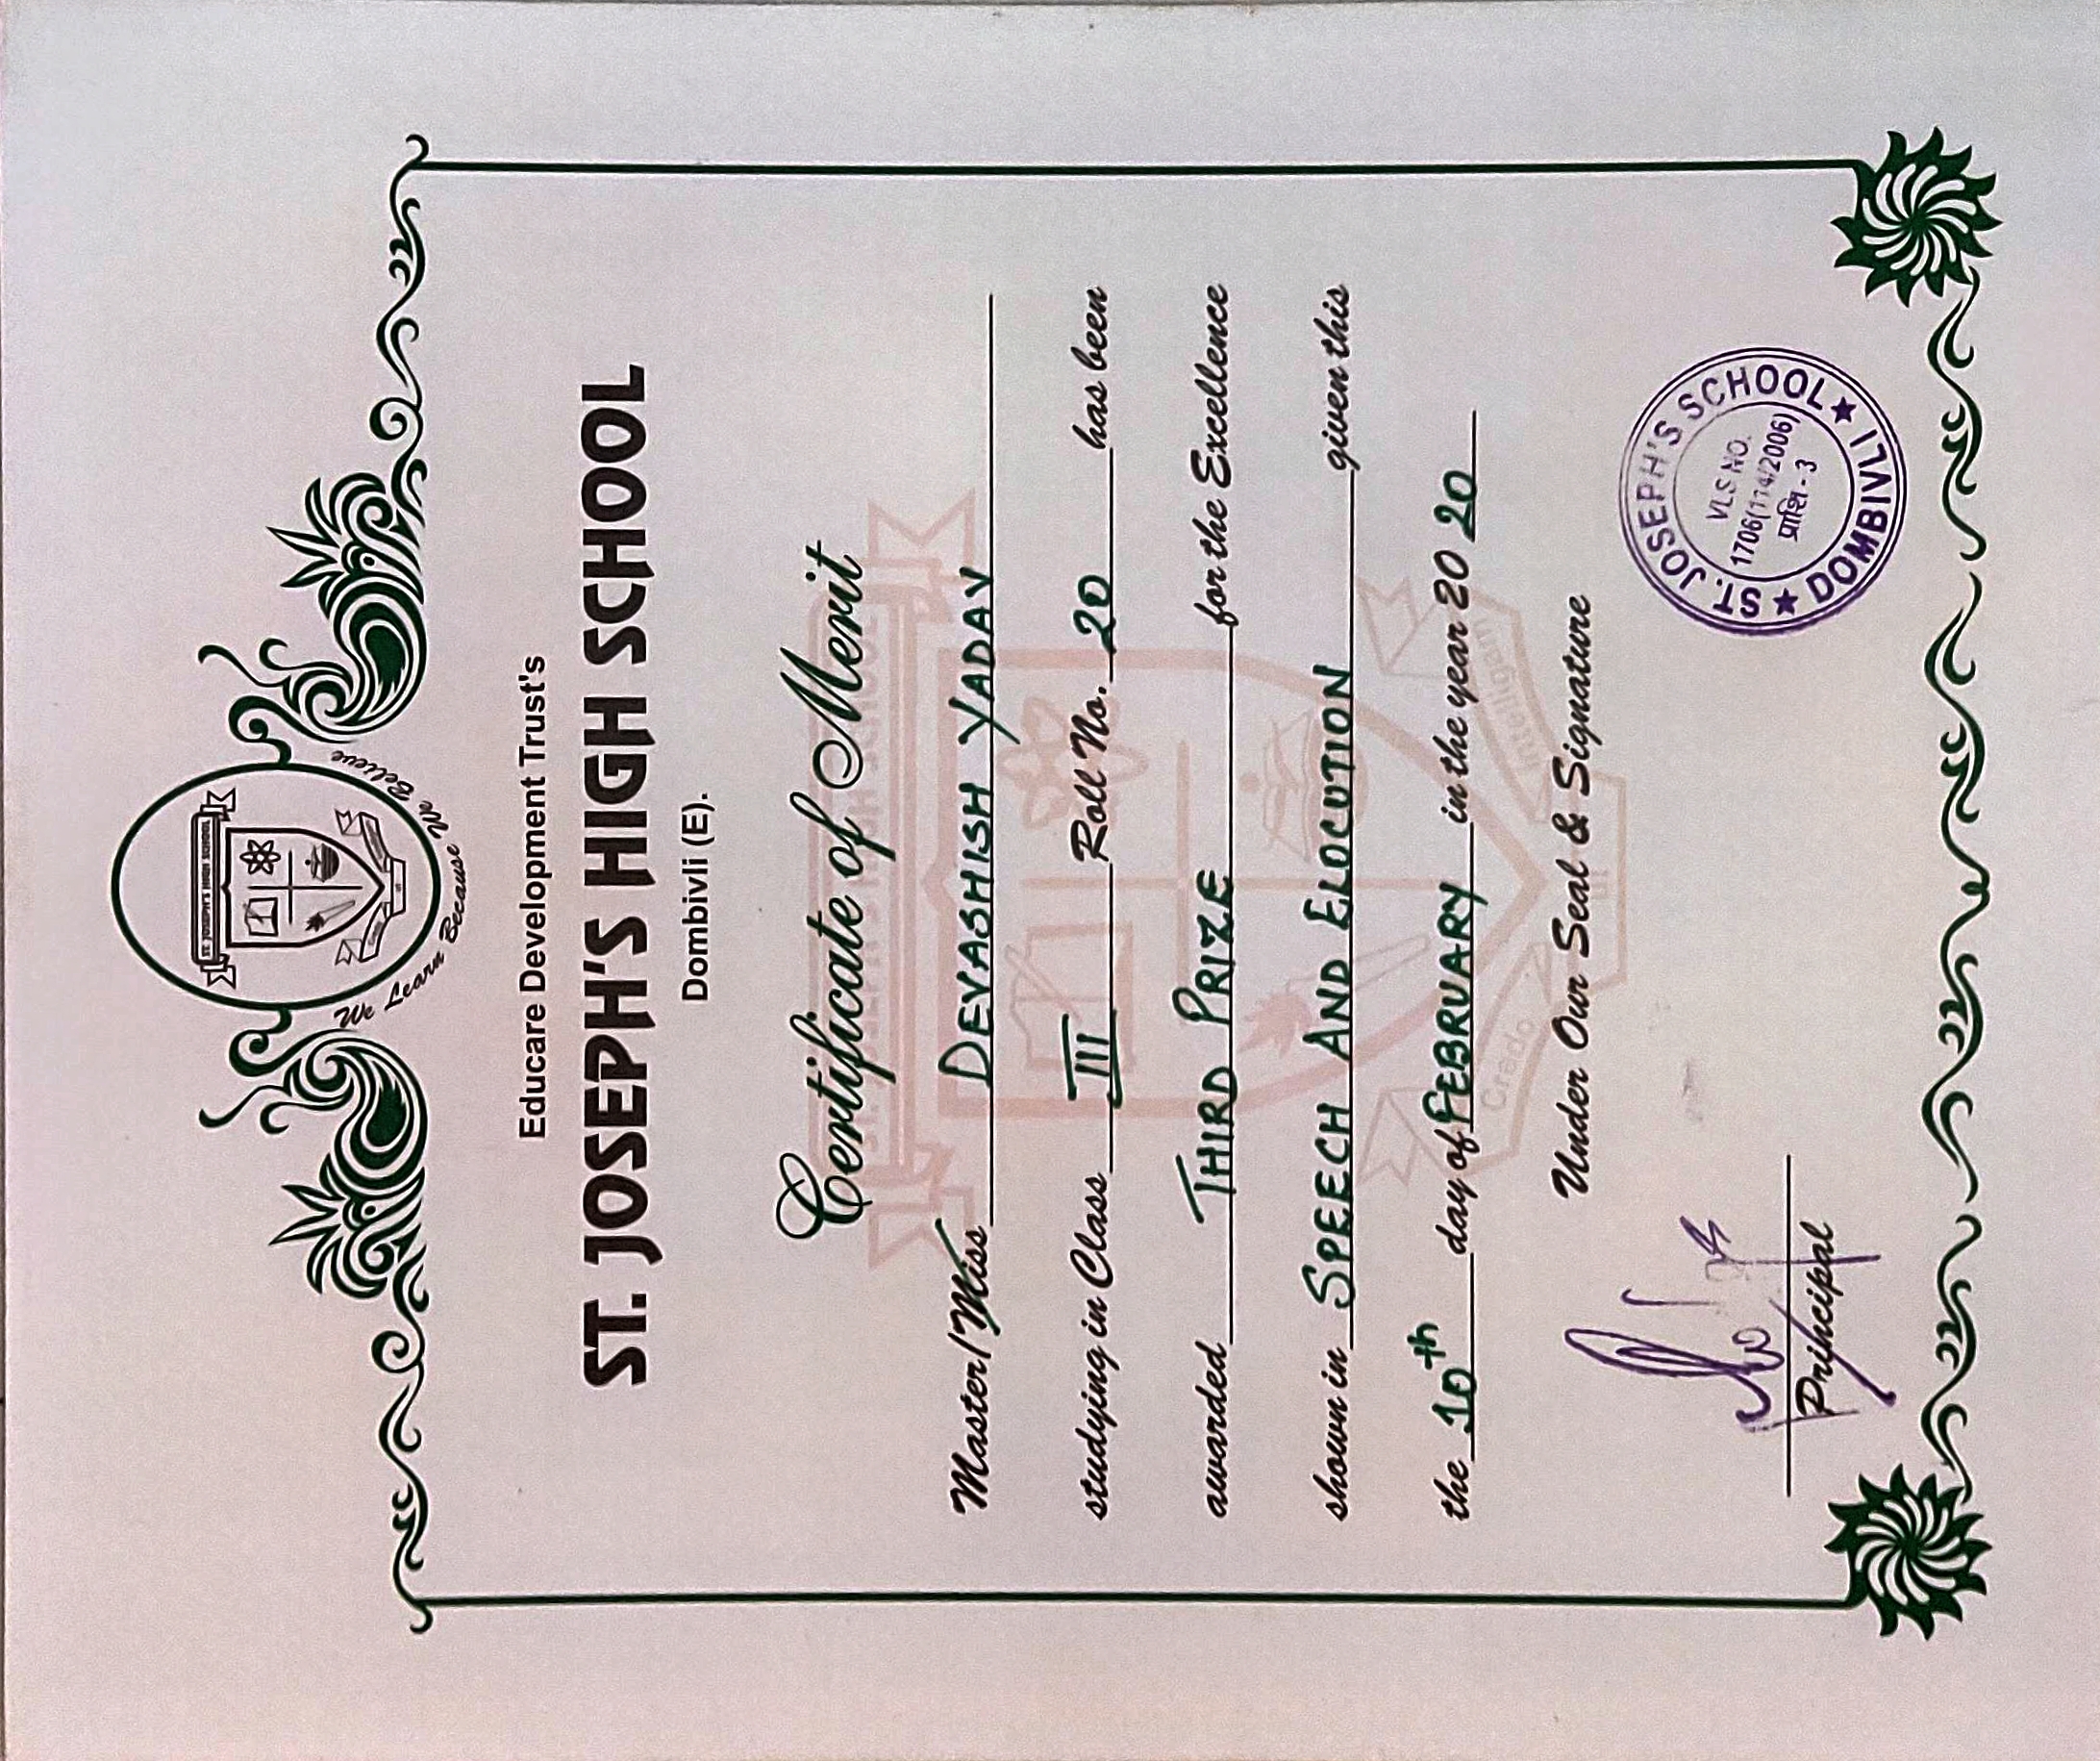 ST. JOSEPH'S HIGH SCHOOL
We Learn Because We Believe
Educare Development Trust's
ST. JOSEPH'S HIGH SCHOOL
Dombivli (E).
Certificate of Merit
ST. JOSEPH'S HIGH SCHOOL
Master/Miss DEVASHISH YADAV
studying in Class III Roll No. 20 has been
awarded THIRD PRIZE for the Excellence
shown in SPEECH AND ELOCUTION given this
the 10th day of FEBRUARY in the year 20 20
Crado Intelligam
Under Our Seal & Signature
ut
Principal
ST. JOSEPH'S SCHOOL
VLS NO.
1706(114/2006)
प्राशि - 3
★ DOMBIVLI ★